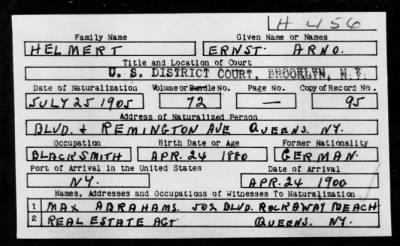 H 456
Family Name Given Name or Names
HELMERT ERNST ARNO.
Title and Location of Court
U. S. DISTRICT COURT, BROOKLYN, N.Y.
Date of Naturalization Volume or Bundle No. Page No. Copy of Record No.
JULY 25 1905 72 — 95
Address of Naturalized Person
BLVD. & REMINGTON AVE QUEENS. NY.
Occupation Birth Date or Age Former Nationality
BLACKSMITH APR. 24 1880 GERMAN.
Port of Arrival in the United States Date of Arrival
NY. APR. 24 1900
Names, Addresses and Occupations of Witnesses To Naturalization
1 MAX ABRAHAMS. 502 BLVD. ROCKAWAY BEACH
2 REAL ESTATE AGT QUEENS. NY.